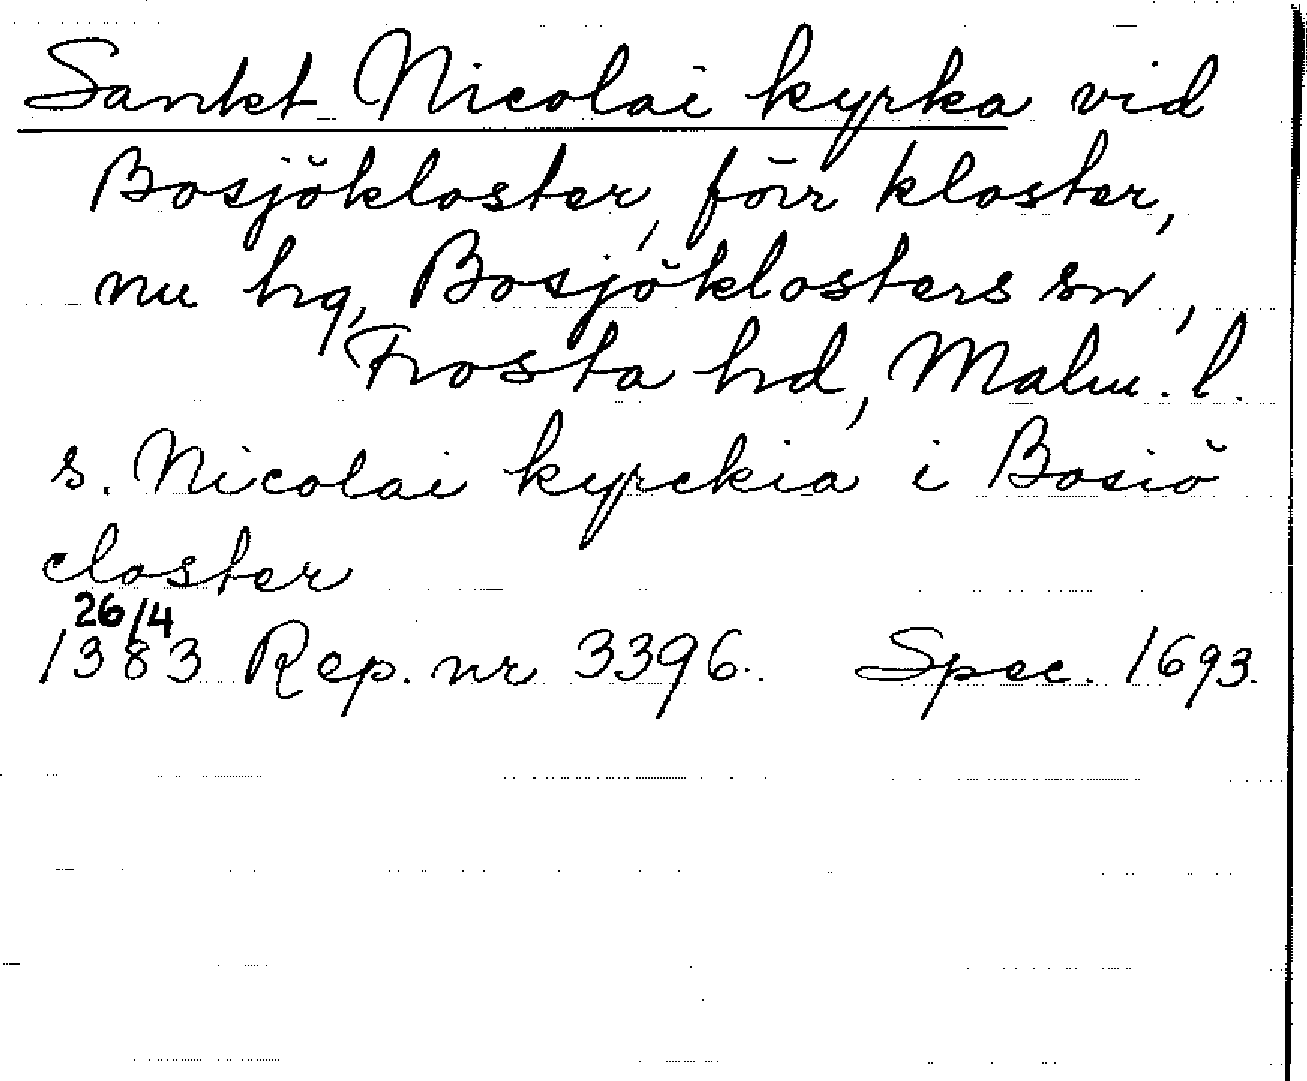 Sankt Nicolai kyrka vid
Bosjökloster, förr kloster,
nu hg, Bosjöklosters sn,
Frosta hd, Malm. l.
s. Nicolai kyrckia i Bosiö
closter
26/4
1383 Rep. nr 3396. Spec. 1693.